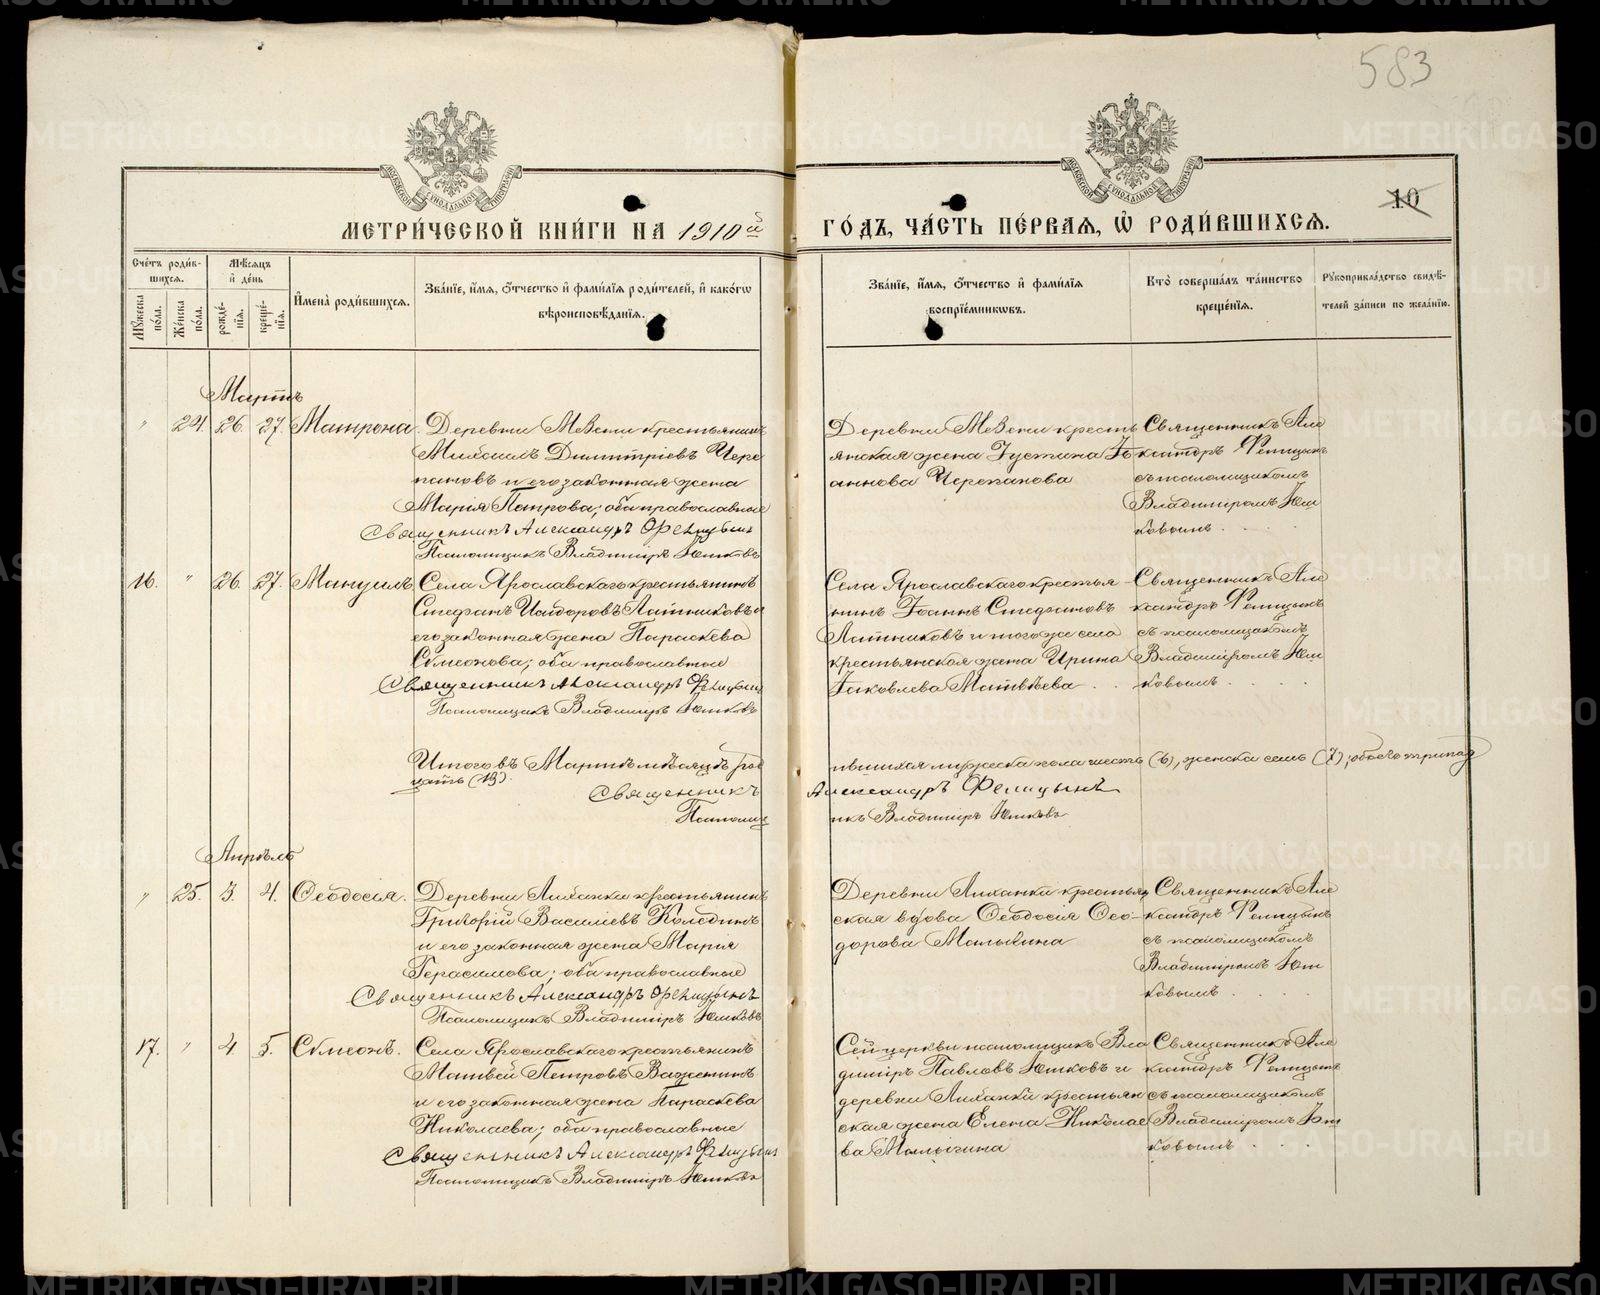 583
10
МЕТРИ́ЧЕСКОЙ КНИ́ГИ НА 1910й ГО́ДЪ, ЧА́СТЬ ПЕ́РВАЯ, Ѽ РОДИ́ВШИХСЯ.
Сче́тъ роди́в-
шихся.
Мѣ́сяцъ
и҆ де́нь
Мꙋ́жеска по́ла.
Же́нска по́ла.
рожде́-
нїѧ.
креще́-
нїѧ.
И҆мена̀ роди́вшихся.
Зва́нїе, и҆́мѧ, ѻ҆́тчество и҆ фами́лїѧ роди́телей, и҆ како́гѡ
вѣроисповѣ́данїѧ.
Зва́нїе, и҆́мѧ, ѻ҆́тчество и҆ фами́лїѧ
воспрїе́мникѡвъ.
Кто̀ соверша́лъ та́инство
креще́нїѧ.
Рꙋкоприкла́дство свидѣ́-
телей за́писи по жела́нїю.
Мартъ
" 24. 26. 27. Матрона. Деревни крестьянинъ
Михаилъ Димитріевъ Чере
пановъ и его законная жена
Марія Петрова; оба православные
Священникъ Александръ Фелицынъ
Псаломщикъ Владиміръ Юшковъ
Деревни кресть
янская жена Іустина
Черепанова
Священникъ Але
ксандръ Фелицынъ
съ псаломщикомъ
Владиміромъ Юш
ковымъ . . .
16. " 26. 27. Мануилъ Села Ярославскаго крестьянинъ
Стефанъ Исидоровъ Латниковъ и
его законная жена Параскева
Сѵмеонова; оба православные
Священникъ Александръ Фелицынъ
Псаломщикъ Владиміръ Юшковъ
Села Ярославскаго крестья
нинъ Іоаннъ Стефановъ
Латниковъ и того же села
крестьянская жена Ирина
Іаковлева Матвѣева . .
Священникъ Але
ксандръ Фелицынъ
съ псаломщикомъ
Владиміромъ Юш
ковымъ . . .
Итого въ Мартѣ мѣсяцѣ родившихся мужеска пола шесть (6), женска семь (7), обоего тринад
цать (13).
Священникъ Александръ Фелицынъ
Псаломщикъ Владиміръ Юшковъ
Апрѣль
" 25. 3. 4. Ѳеодосія. Деревни Лиханки крестьянинъ
Григорій Василіевъ Колодинъ
и его законная жена Марія
Герасимова; оба православные
Священникъ Александръ Фелицынъ
Псаломщикъ Владиміръ Юшковъ
Деревни Лиханки крестьян
ская вдова Ѳеодосія Ѳео-
дорова Малыгина
Священникъ Але
ксандръ Фелицынъ
съ псаломщикомъ
Владиміромъ Юш
ковымъ . . . .
17. " 4. 5. Сѵмеонъ. Села Ярославскаго крестьянинъ
Матвей Петровъ Важенинъ
и его законная жена Параскева
Николаева; оба православные
Священникъ Александръ Фелицынъ
Псаломщикъ Владиміръ Юшковъ
Сей церкви псаломщикъ Вла
диміръ Павловъ Юшковъ и
деревни Лиханки крестьян
ская жена Елена Николае
ва Малыгина
Священникъ Але
ксандръ Фелицынъ
съ псаломщикомъ
Владиміромъ Юш
ковымъ . . .
METRIKI.GASO-URAL.RU